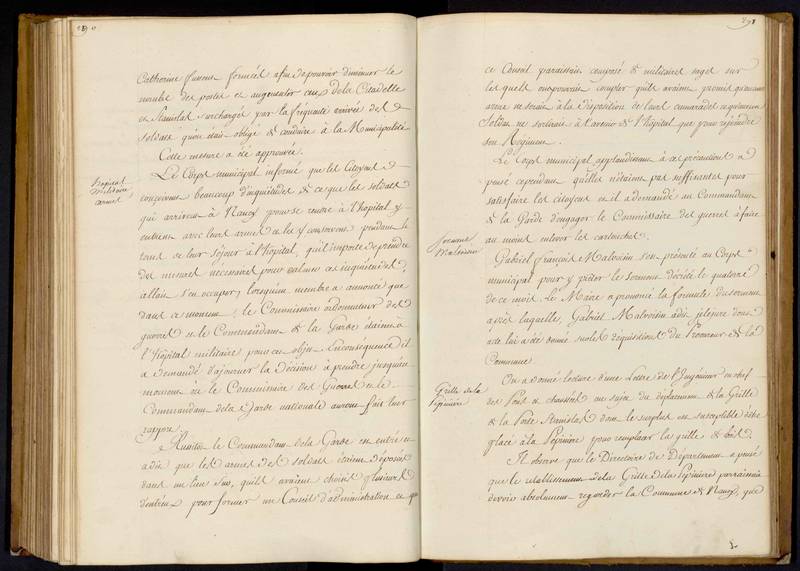 290
Catherine fussent formées afin de pouvoir diminuer le
nombre des postes et augmenter ceux de la Citadelle
et Stanislas surchargés par la fréquente arrivée des
soldats qu'on était obligé de conduire à la Municipalité.
Cette mesure a été approuvée.
hopital
Militaire
armes
Le Corps municipal informé que les Citoyens
conçoivent beaucoup d'inquiétudes de ce que les soldats
qui arrivent à Nancy pour se rendre à l'hôpital y
entrent avec leurs armes et les y conservent pendant le
tems de leur séjour à l'hôpital, qu'il importe de prendre
des mesures necessaires pour calmer ces inquiétudes,
allait s'en occuper, lorsqu'un membre a annoncé que
dans ce moment, le Commissaire ordonnateur des
guerres et le Commandant de la Garde étaient à
l'hôpital militaire pour cet objet. En conséquence il
a demandé d'ajourner la décision à prendre jusqu'au
moment où le Commissaire des Guerres et le
Commandant de la Garde nationale auront fait leur
rapport.
Ensuite le Commandant de la Garde est entré et
a dit que les armes des soldats étaient déposées
dans un lieu sur, qu'ils avaient choisi plusieurs
d'entr'eux pour former un Conseil d'administration et que
291
ce Conseil paraissait composé de militaires sages sur
lesquels on pouvait compter qu'ils avaient promis qu'aucune
arme ne serait à la disposition de leurs camarades et qu'aucun
Soldat ne sortirait à l'avenir de l'hôpital que pour rejoindre
son Régiment.
Le Corps municipal applaudissant à ces précautions a
pensé cependant qu'elles n'étaient pas suffisantes pour
satisfaire les citoyens et il a demandé au Commandant
de la Garde d'engager le Commissaire des guerres à faire
au moins enlever les cartouches.
Serment
Malvoisin
Gabriel françois Malvoisin s'est présenté au Corps
municipal pour y prêter le serment décrété le quatorze
de ce mois. Le Maire a prononcé la formule du serment
après laquelle, Gabriel Malvoisin a dit je le jure dont
acte lui a été donné sur les réquisitions du Procureur de la
Commune.
Grille de la
Pépinière
On a donné lecture d'une Lettre de l'Ingénieur en chef
des Ponts et chaussées au sujet du déplacement de la Grille
de la Porte Stanislas dont le surplus est susceptible d'être
placé à la Pépinière pour remplacer la grille de bois.
Il observe que le Directoire de Département a pensé
que le retablissement de la Grille de la Pépinière paraissait
devoir absolument regarder la Commune de Nancy, que